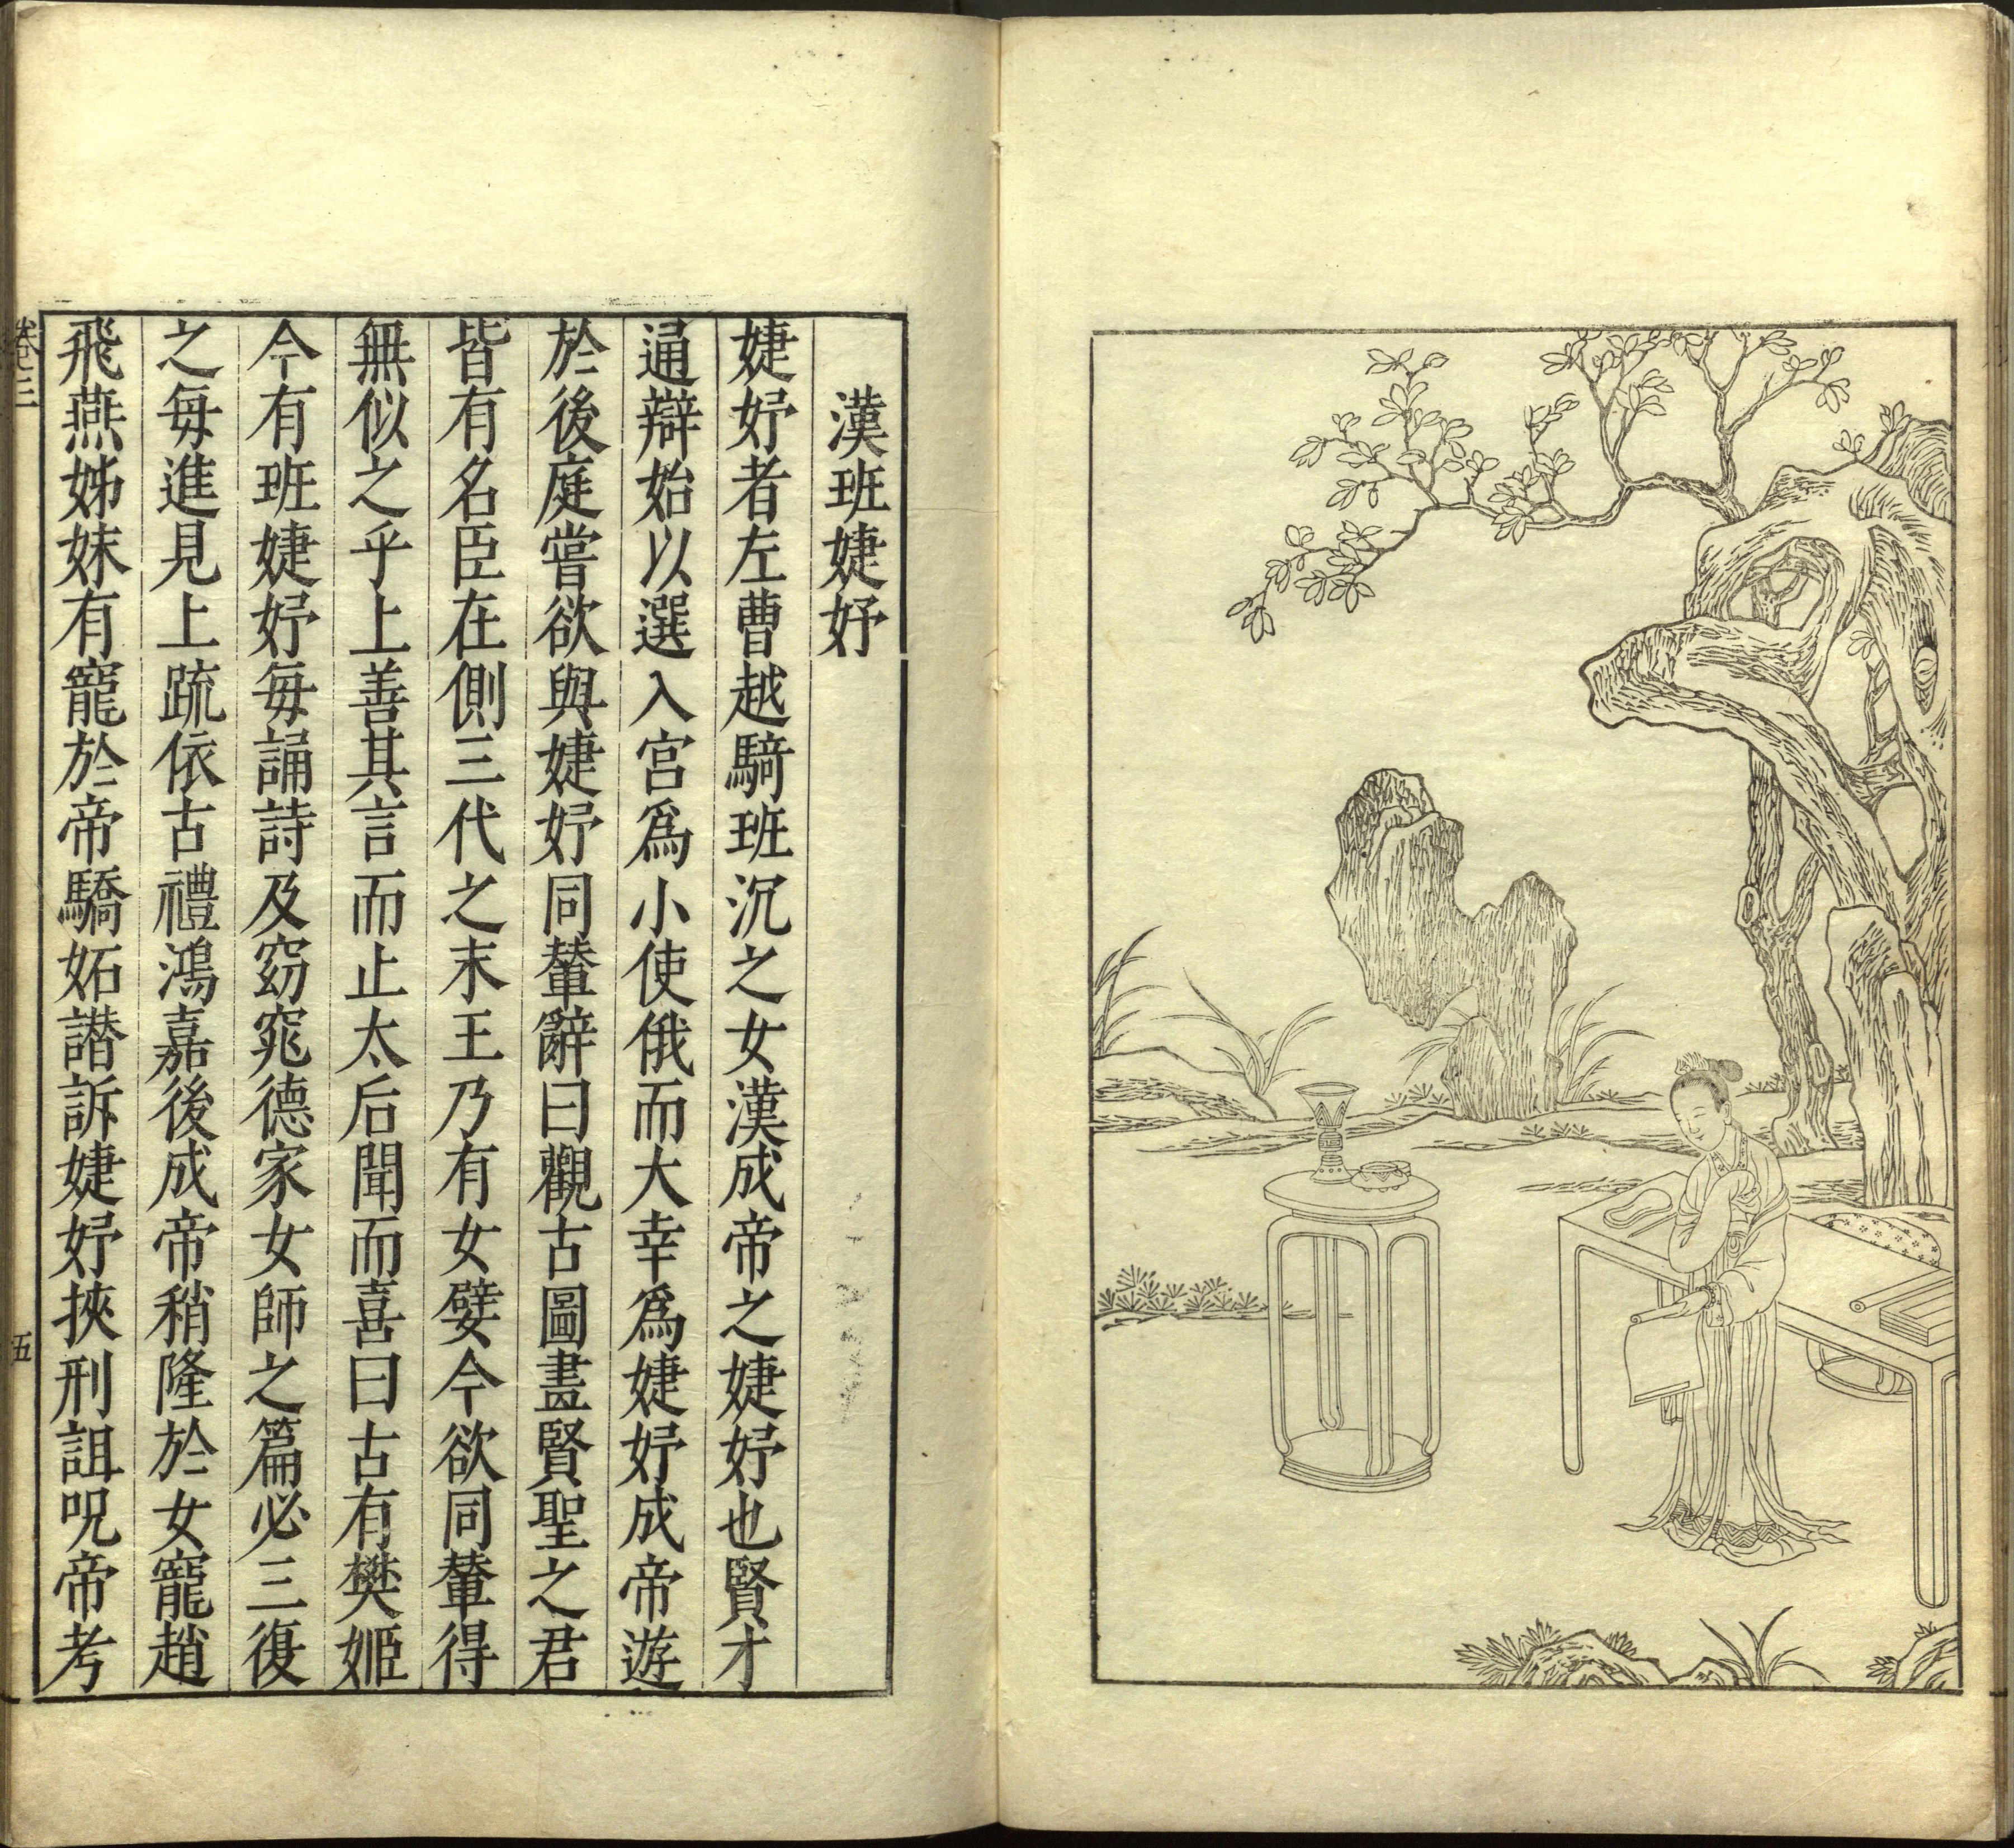 漢班婕妤
婕妤者左曹越騎班沉之女漢成帝之婕妤也賢才
通辯始以選入宮爲小使俄而大幸爲婕妤成帝遊
於後庭嘗欲與婕妤同輦辭曰觀古圖畫賢聖之君
皆有名臣在側三代之末王乃有女嬖今欲同輦得
無似之乎上善其言而止太后聞而喜曰古有樊姬
今有班婕妤每誦詩及窈窕德家女師之篇必三復
之每進見上疏依古禮鴻嘉後成帝稍隆於女寵趙
飛燕姊妹有寵於帝驕妬譖訴婕妤挾刑詛呪帝考
卷三
五